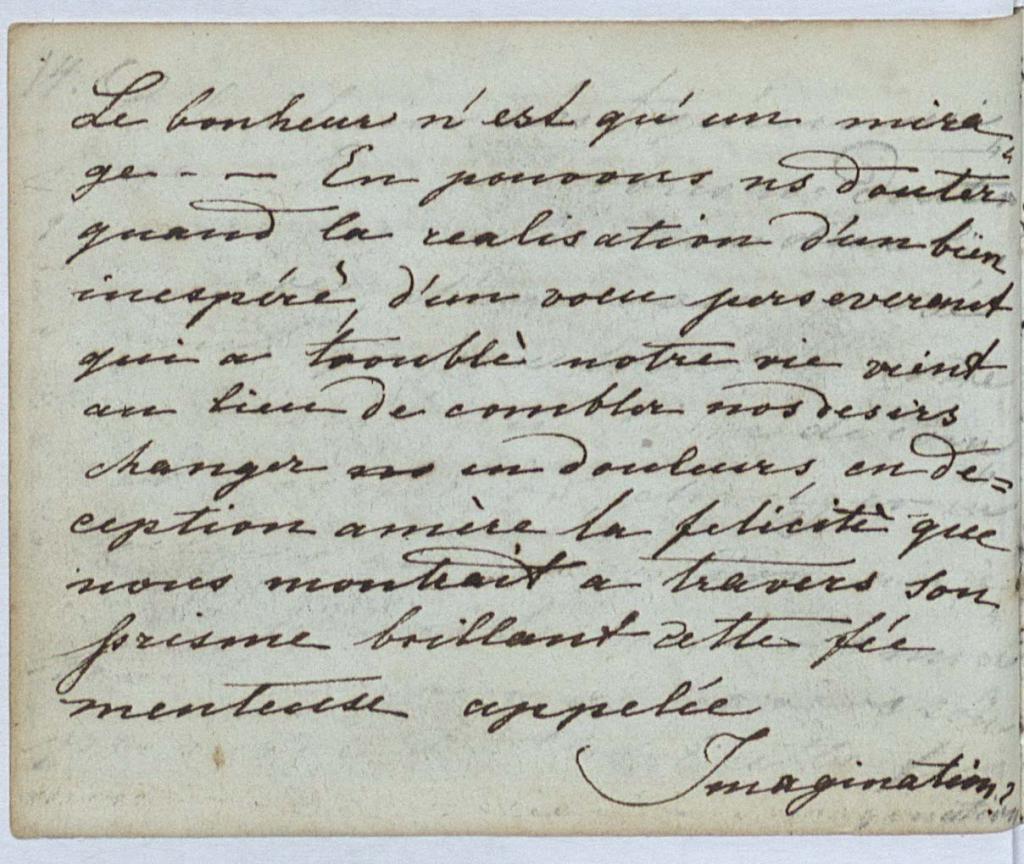 Le bonheur n'est qu'un mira
ge - - En pouvons ns douter
quand la realisation d'un bien
inespéré, d'un voeu perseverant
qui a troublè notre vie vient
au lieu de combler nos desirs
changer en douleurs, en de=
ception amère la felicitè que
nous montrait a travers son
prisme brillant cette fée
menteuse appelée
Imagination?